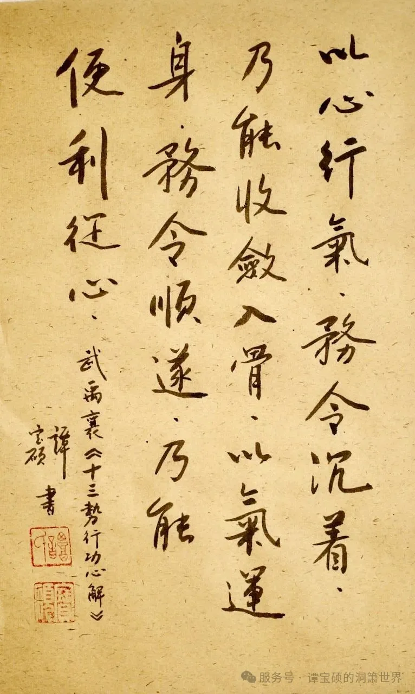 以心行氣．務令沉着．
乃能收斂入骨．以氣運
身．務令順遂．乃能
便利從心．
武禹襄《十三勢行功心解》
譚宝碩書
服务号·谭宝硕的洞箫世界